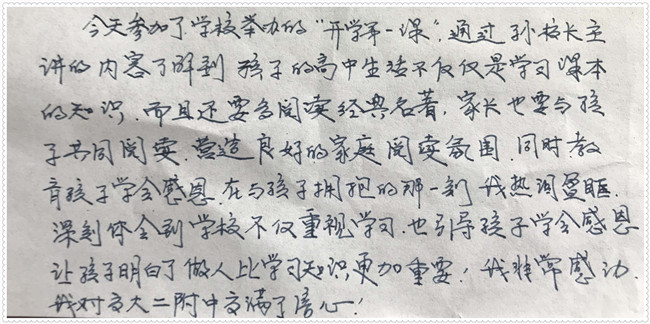 今天参加了学校举办的“开学第一课”，通过孙校长主
讲的内容了解到孩子的高中生活不仅仅是学习课本
的知识．而且还要多阅读经典名著，家长也要与孩
子共同阅读．营造良好的家庭阅读氛围．同时教
育孩子学会感恩．在与孩子拥抱的那一刻我热泪盈眶．
深刻体会到学校不仅重视学习．也引导孩子学会感恩
让孩子明白了做人比学习知识更加重要！我非常感动．
我对交大二附中充满了信心！